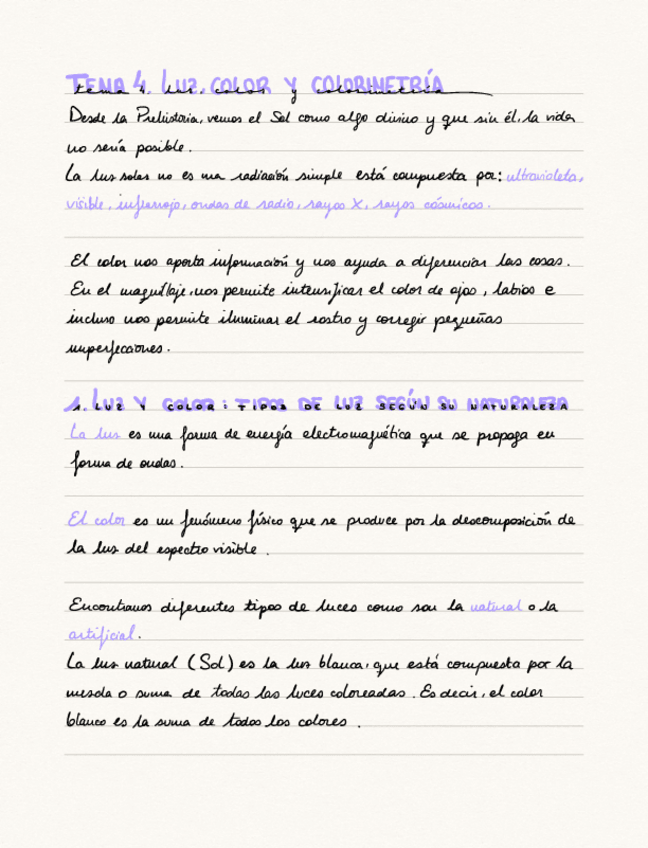 TEMA 4. LUZ, COLOR Y COLORIMETRÍA
tema 4. luz, color y colorimetría
Desde la Prehistoria, vemos el Sol como algo divino y que sin él, la vida
no sería posible.
La luz solar no es una radiación simple está compuesta por: ultravioleta,
visible, infrarrojo, ondas de radio, rayos X, rayos cósmicos.
El color nos aporta información y nos ayuda a diferenciar las cosas.
En el maquillaje, nos permite intensificar el color de ojos, labios e
incluso nos permite iluminar el rostro y corregir pequeñas
imperfecciones.
1. LUZ Y COLOR: TIPOS DE LUZ SEGÚN SU NATURALEZA
1. LUZ Y COLOR: TIPOS DE LUZ SEGÚN SU NATURALEZA
La luz es una forma de energía electromagnética que se propaga en
forma de ondas.
El color es un fenómeno físico que se produce por la descomposición de
la luz del espectro visible.
Encontramos diferentes tipos de luces como son la natural o la
artificial.
La luz natural (Sol) es la luz blanca, que está compuesta por la
mezcla o suma de todas las luces coloreadas. Es decir, el color
blanco es la suma de todos los colores.